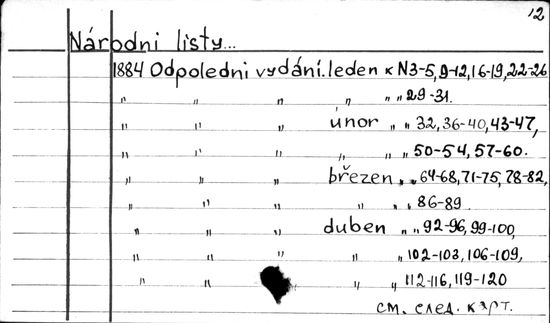 12
Národni listy...
1884 Odpoledni vydání. leden к N 3-5, 9-12, 16-19, 22-26
" " " " " " 29-31.
" " " únor " " 32, 36-40, 43-47,
" " " " " " 50-54, 57-60.
" " " březen " " 64-68, 71-75, 78-82,
" " " " " " 86-89.
" " " duben " " 92-96, 99-100,
" " " " " 102-103, 106-109,
" " " " " 112-116, 119-120
см. след. карт.